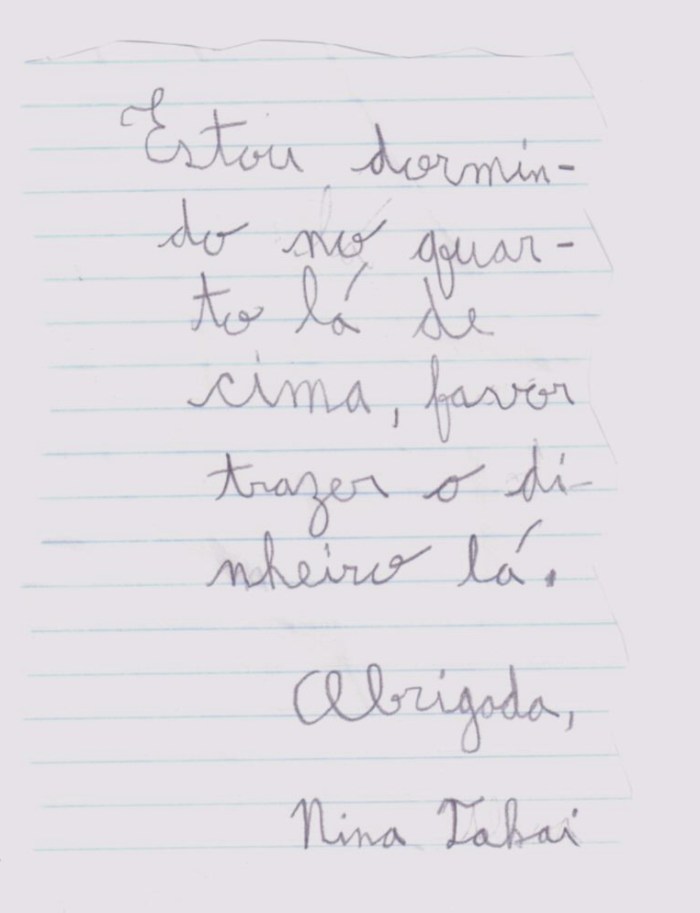 Estou dormin-
do no quar-
to lá de
cima, favor
trazer o di-
nheiro lá.
Obrigada,
Nina Takai